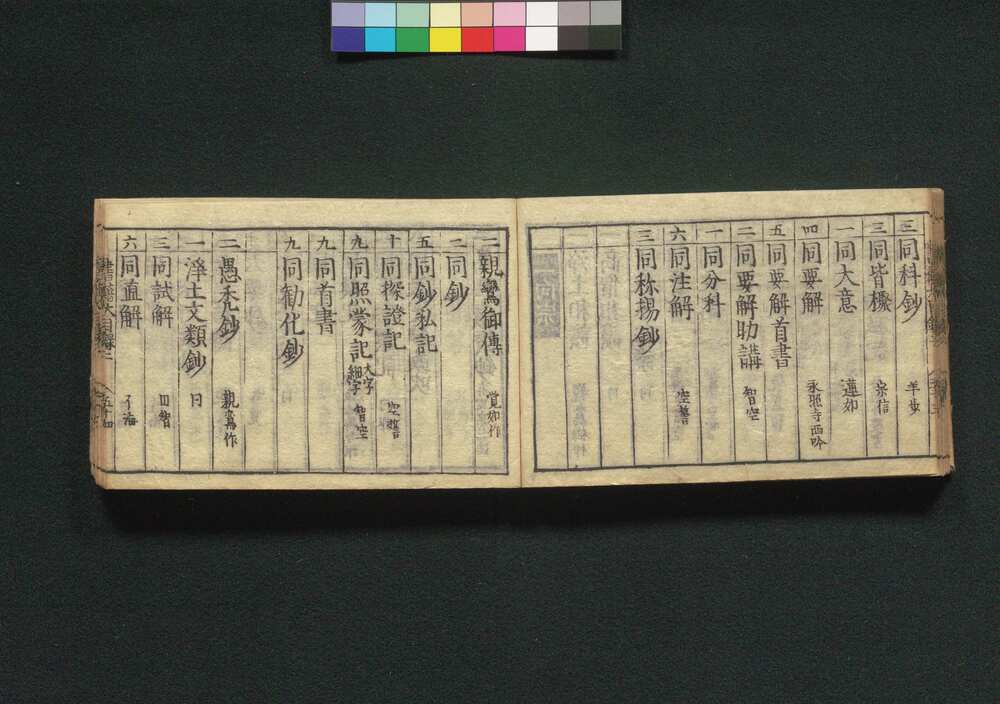 三 同科鈔
三 同皆攝 宗信
一 同大意 蓮如
四 同要解 永照寺西吟
五 同要解首書
二 同要解助講 智空
一 同分科
六 同注解 空誓
三 同称揚鈔
二 親鸞御傳 覚如作
二 同鈔
五 同鈔私記
十 同探證記 空誓
九 同照蒙記 大字細字 智空
九 同首書
九 同勧化鈔
二 愚禿鈔 親鸞作
一 浄土文類鈔 同
三 同試解
六 同直解